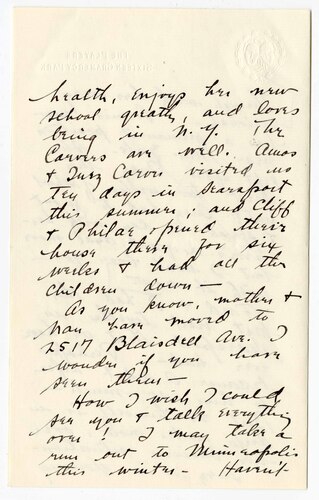 health, enjoys her new
school greatly, and loves
being in N.Y. The
Carvers are well. Amos
& Inez Carver visited us
ten days in Searsport
this summer; and Cliff
& Philae opened their
house there for six
weeks & had all the
children down —
As you know, mother &
nan have moved to
2517 Blaisdell Ave. I
wonder if you have
seen them —
How I wish I could
see you & talk everything
over! I may take a
run out to Minneapolis
this winter — Haven't